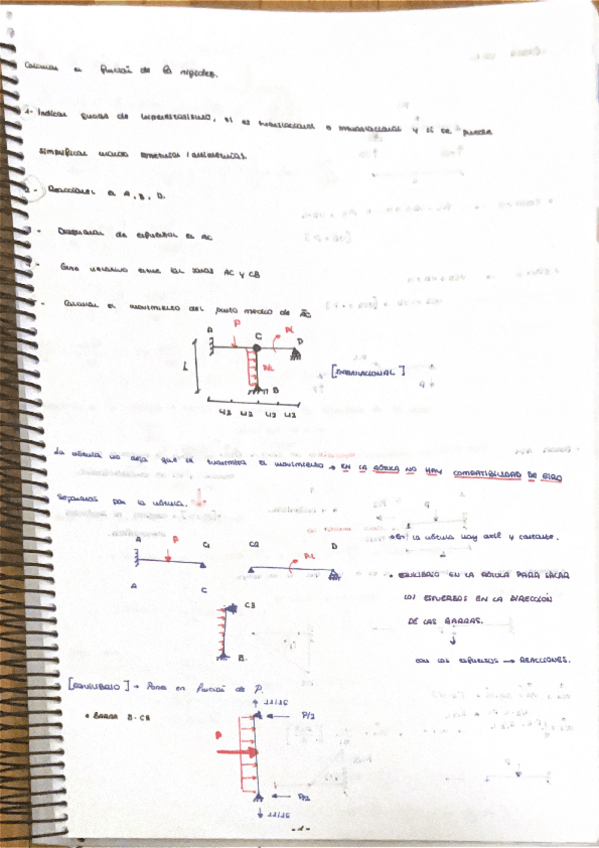 Calcular en función de las incógnitas.
1- Indicar grado de hiperestatismo, si es traslacional o intraslacional y si se puede
simplificar usando simetrías / antisimetrías.
2- Reacciones en A, B, D.
3- Diagramas de esfuerzos en AC
4- Giro relativo entre las barras AC y CB
- Calcular el movimiento del punto medio de AC
A P C PL D
L P/L B
L/2 L/2 L/2 L/2
[INTRASLACIONAL]
La rótula no deja que se transmita el movimiento → EN LA RÓTULA NO HAY COMPATIBILIDAD DE GIRO
Separamos por la rótula.
A P C1 C2 D
PL
A C
C3
B
→ En la rótula hay axil y cortante.
• EQUILIBRIO EN LA RÓTULA PARA SACAR
LOS ESFUERZOS EN LA DIRECCIÓN
DE LAS BARRAS.
↓
CON LOS ESFUERZOS → REACCIONES.
→ [EQUILIBRIO] → Poner en función de P.
• BARRA B-CB
P
P/2
P/2
-1-